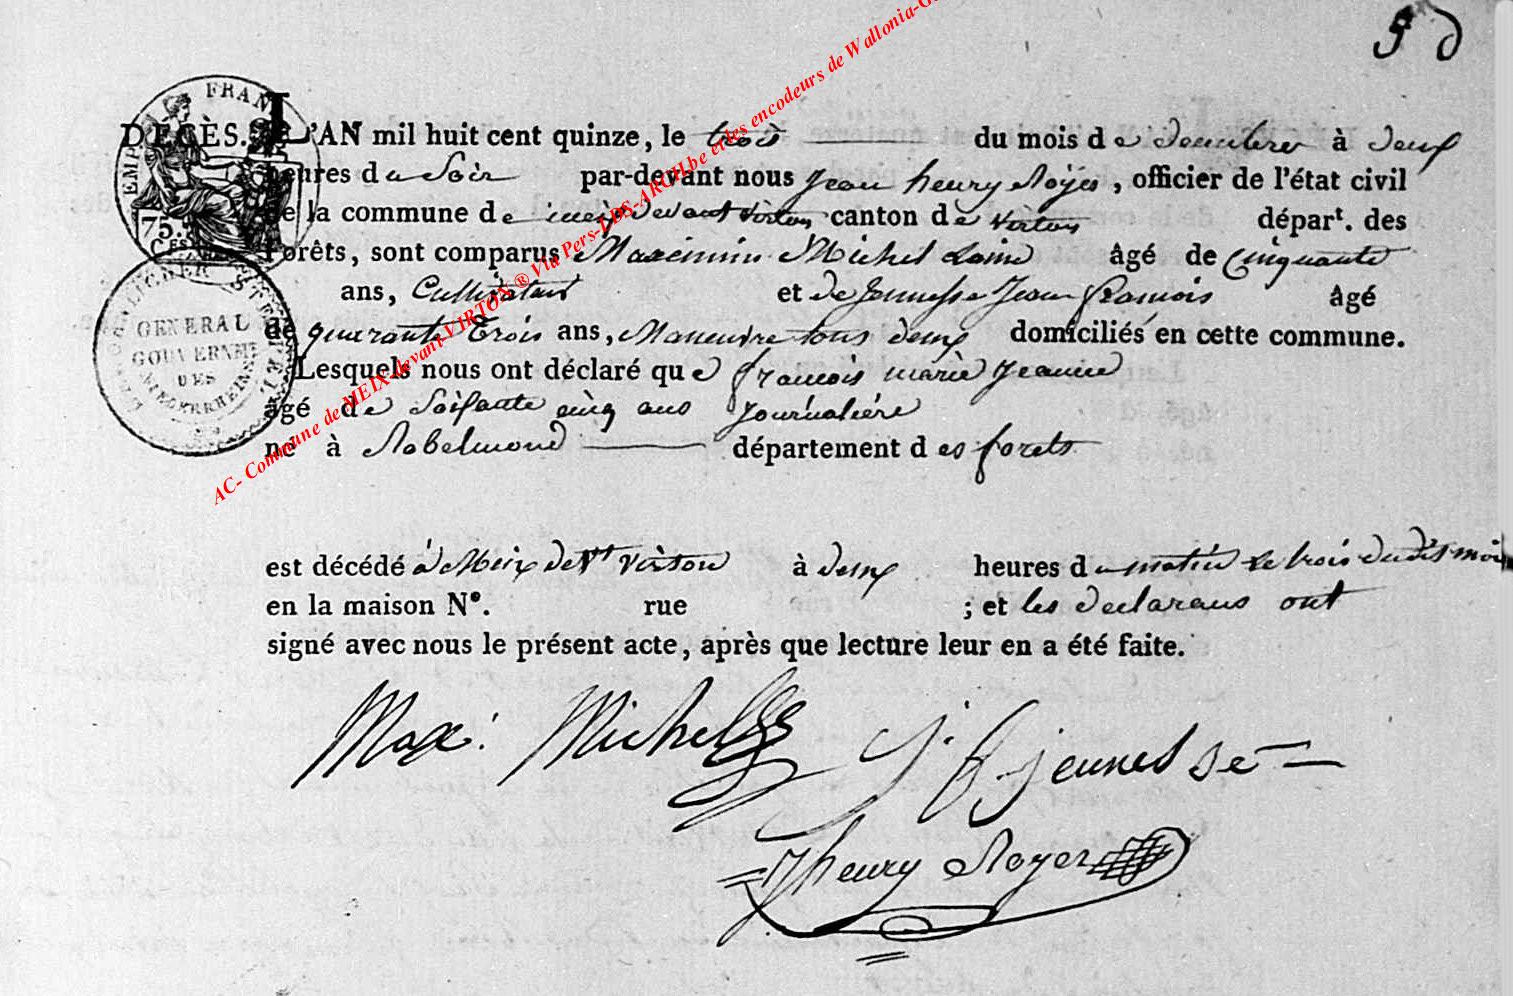 5 d
DECÈS. L'AN mil huit cent quinze, le trois du mois de decembre à deux
heures du Soir par-devant nous Jean henry Royer, officier de l'état civil
de la commune de meix devant virton canton de virton départ. des
Forêts, sont comparus Maximin Michel âgé de Cinquante
ans, Cultivateur et de Jeunesse Jean françois âgé
de quarante trois ans, Maneuvre tous deux domiciliés en cette commune.
Lesquels nous ont déclaré que françois marie Jeanne
âgé de Soisante cinq ans Journaliére
né à Robelmond département des forets
est décédé à Meix devt virton à deux heures du matin le trois dudit mois
en la maison N°. rue ; et les declarans ont
signé avec nous le présent acte, après que lecture leur en a été faite.
Max. Michel J. f. jeunesse
Jhenry Royer
FRAN
EMP
75.
CES
GENERAL
GOUVERNEMT
DES
NIEDERRHEINS
STEMPEL
AC- Commune de MEIX-devant-VIRTON ® Via Pers-LDS-ARCH.be et les encodeurs de Wallonia-G